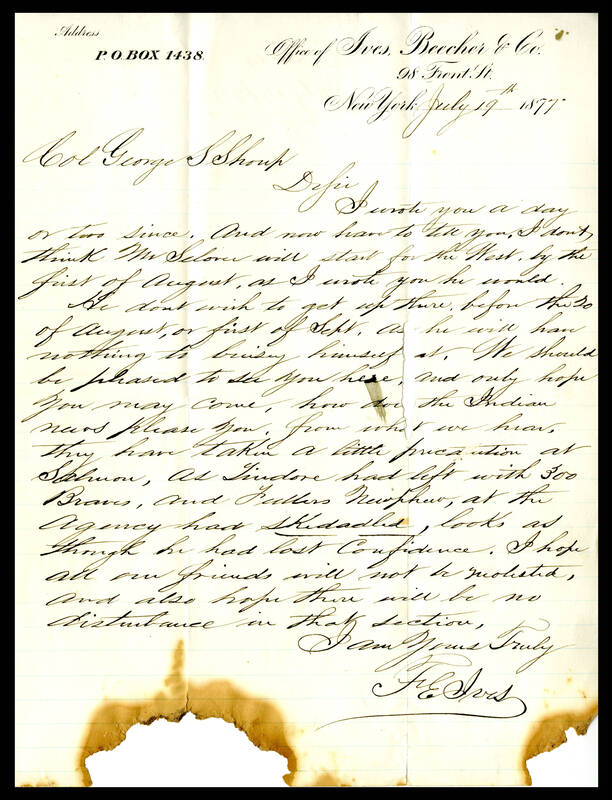 Address
P. O. BOX 1438.
Office of Ives, Beecher & Co.
98 Front St.
New York, July 19th 1877
Col George S Shoup
D Sir
I wrote you a day
or two since. And now have to tell you, I dont
think Mr Selover will start for the West, by the
first of August, as I wrote you he would.
He dont wish to get up there, before the 20
of August, or first of Sept. as he will have
nothing to buisy himself at. We should
be pleased to see you here, and only hope
you may come, how do the Indian
news please you, from what we hear,
they have taken a little precaution at
Salmon, as Tindore had left with 300
Braves, and Fullers Newphew, at the
Agency had skidadled, looks as
though he had lost Confidence. I hope
all our friends will not be molested,
and also hope there will be no
disturbance in that section,
I am Yours Truly
F E Ives